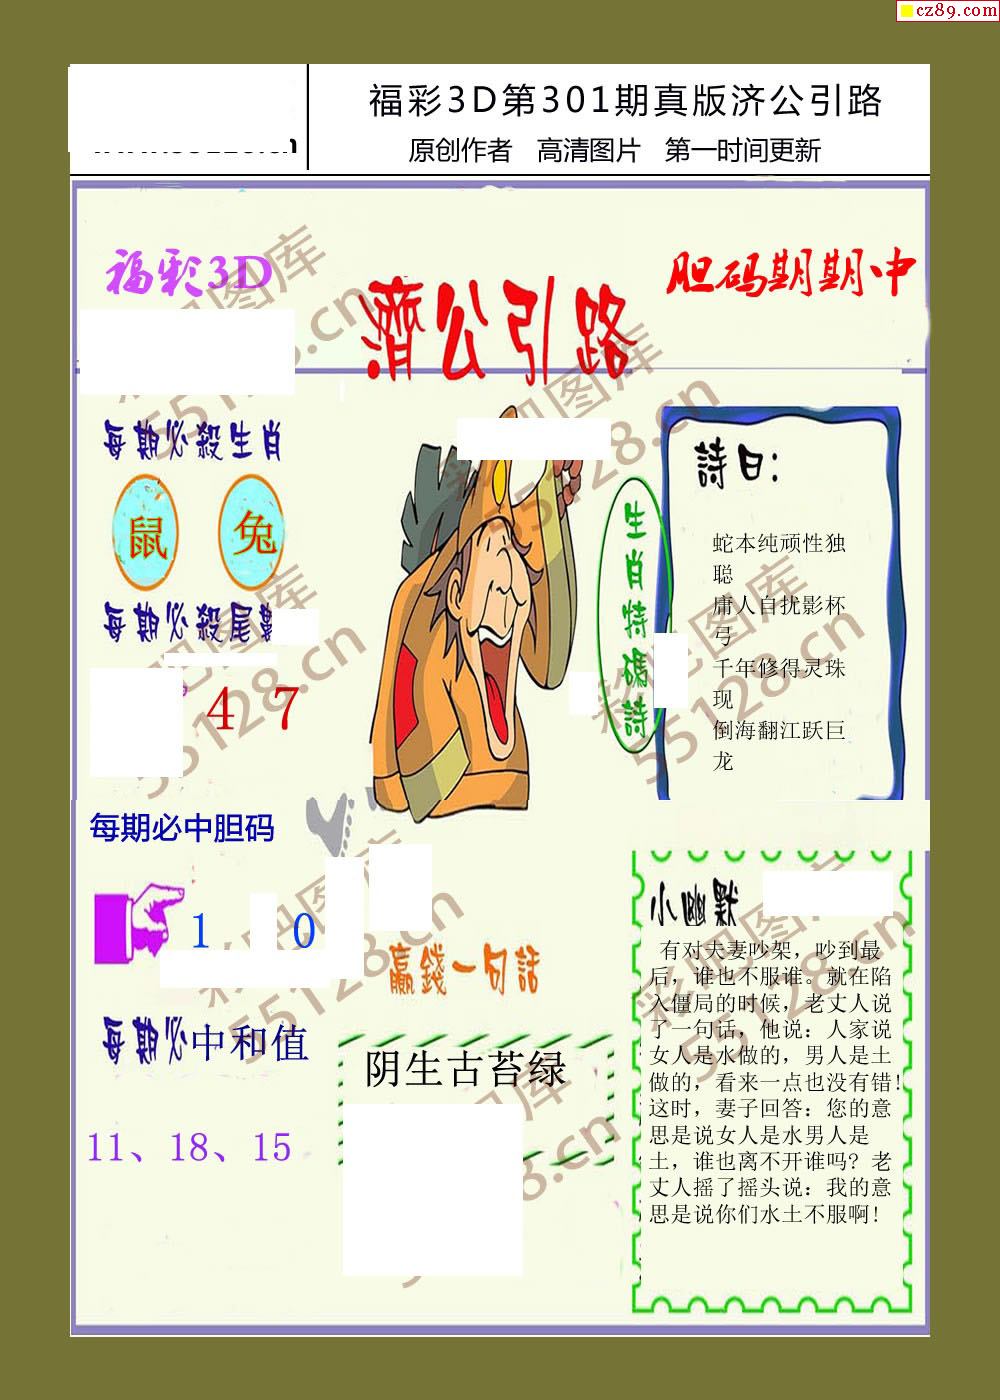 cz89.com
福彩3D第301期真版济公引路
原创作者 高清图片 第一时间更新
福彩3D
胆码期期中
濟公引路
每期必殺生肖
鼠 兔
每期必殺尾
4 7
生肖特碼詩
詩曰:
蛇本纯顽性独
聪
庸人自扰影杯
弓
千年修得灵珠
现
倒海翻江跃巨
龙
每期必中胆码
1 0
每期必中和值
11、18、15
贏錢一句話
阴生古苔绿
小幽默
有对夫妻吵架，吵到最
后，谁也不服谁。就在陷
入僵局的时候，老丈人说
了一句话，他说：人家说
女人是水做的，男人是土
做的，看来一点也没有错！
这时，妻子回答：您的意
思是说女人是水男人是
土，谁也离不开谁吗？老
丈人摇了摇头说：我的意
思是说你们水土不服啊！
彩吧图库
55128.cn